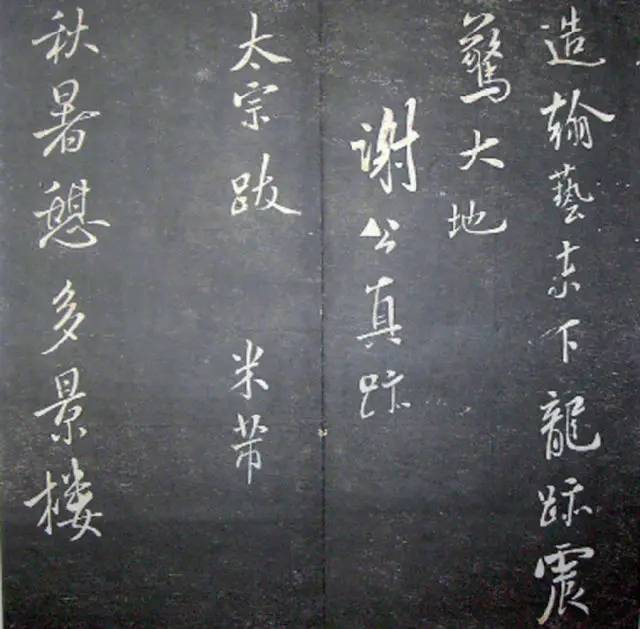 造翰藝束下龍跡震
驚大地
謝公真跡
太宗跋 米芾
秋暑憩多景楼